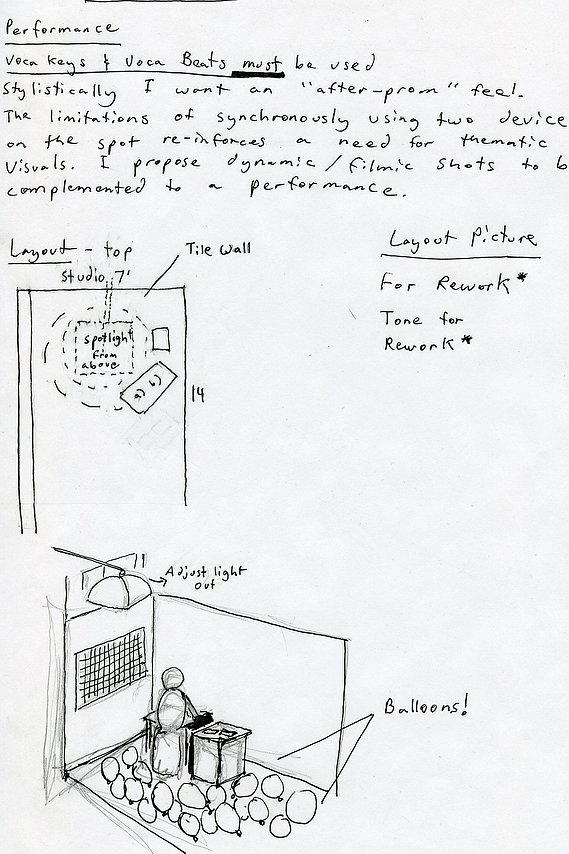 Performance
Voca Keys & Voca Beats must be used
Stylistically I want an "after-prom" feel.
The limitations of synchronously using two device
on the spot re-inforces a need for thematic
Visuals. I propose dynamic / filmic shots to b
complemented to a performance.
Layout - top
Tile Wall
Studio 7'
spotlight
from
above
14
Layout Picture
For Rework*
Tone for
Rework*
Adjust light
out
Balloons!